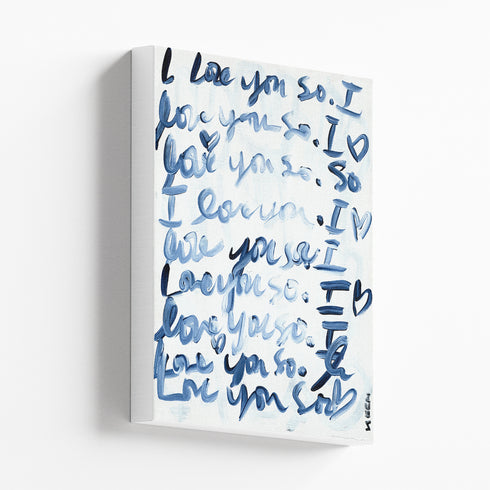 I Love you so. I
love you so. I ♡
love you so. So
I love you. I ♡
love you so. I
Love you so. I ♡
love you so. I
Love you so. I
Love you so ♡
KEEN